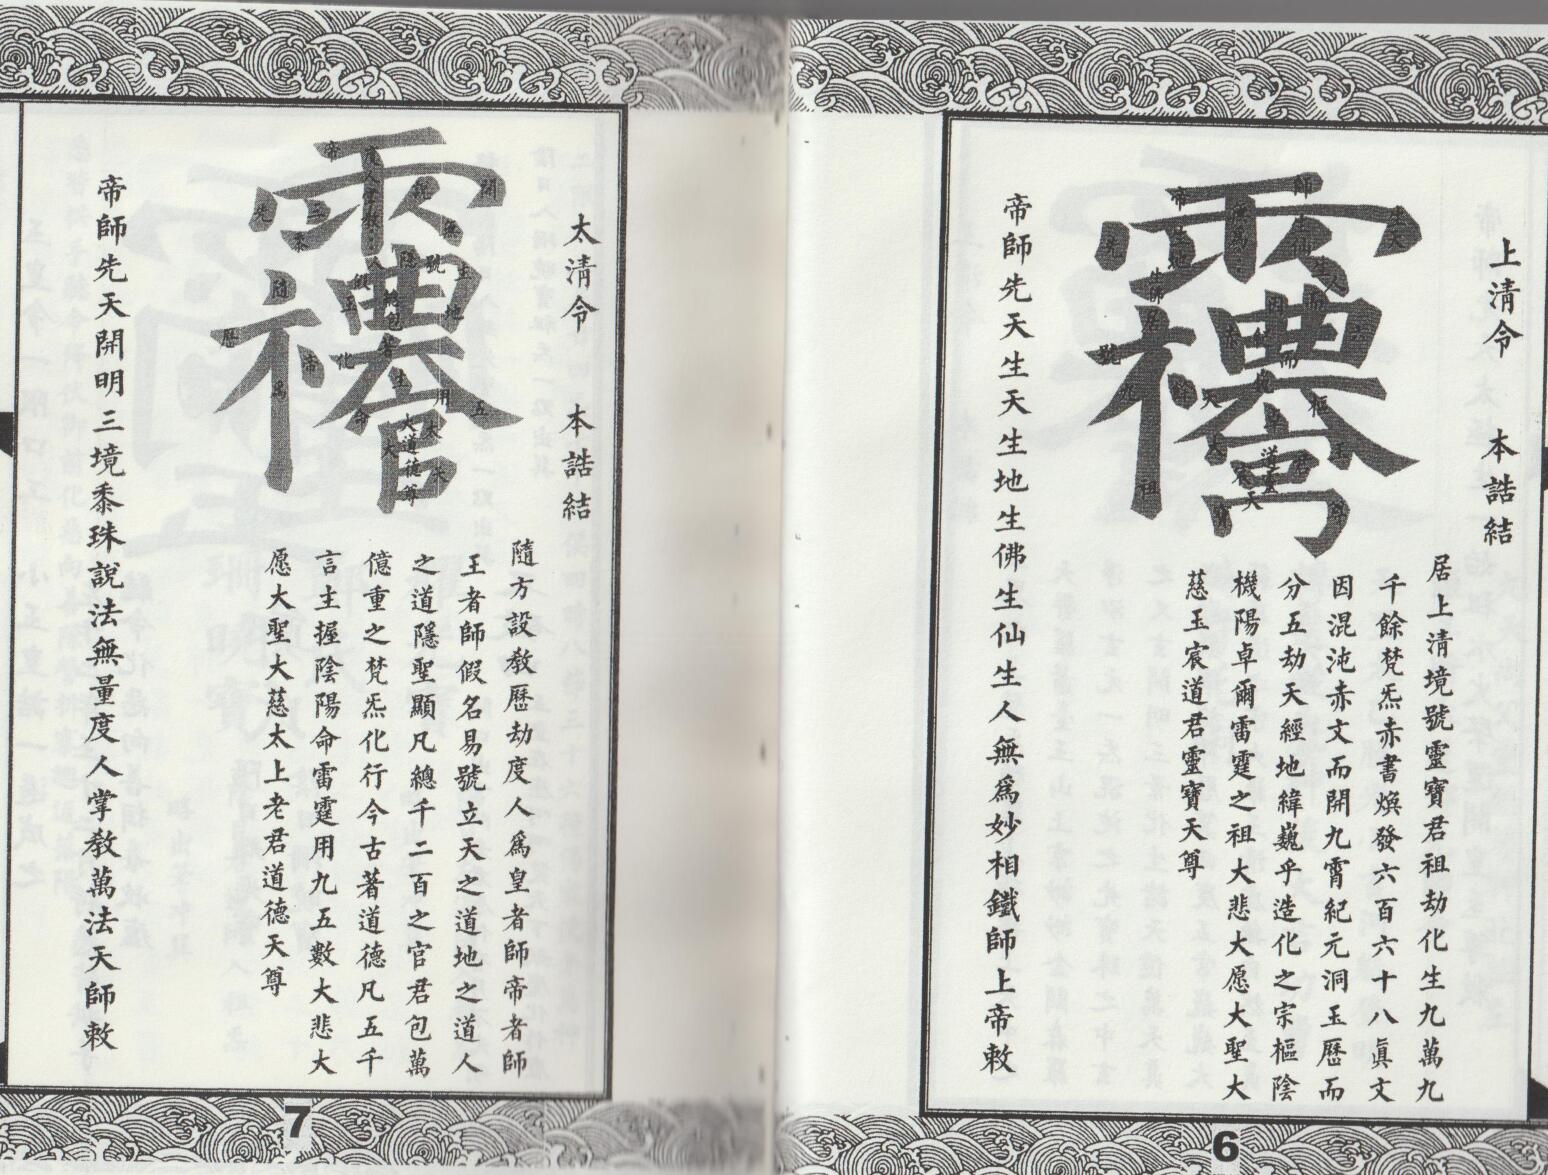 上清令　本誥結
居上清境號靈寶君祖劫化生九萬九
千餘梵炁赤書煥發六百六十八眞文
因混沌赤文而開九霄紀元洞玉歷而
分五劫天經地緯巍乎造化之宗樞陰
機陽卓爾雷霆之祖大悲大愿大聖大
慈玉宸道君靈寶天尊
帝師先天生天生地生佛生仙生人無爲妙相鐵師上帝敕
6
太清令　本誥結
隨方設教歷劫度人爲皇者師帝者師
王者師假名易號立天之道地之道人
之道隱聖顯凡總千二百之官君包萬
億重之梵炁化行今古著道德凡五千
言主握陰陽命雷霆用九五數大悲大
愿大聖大慈太上老君道德天尊
帝師先天開明三境黍珠說法無量度人掌教萬法天師敕
7